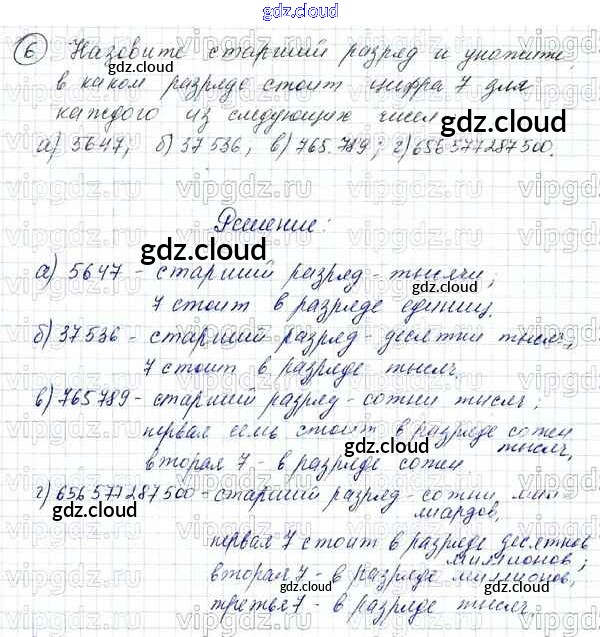 gdz.cloud
6 Назовите старший разряд и укажите,
в каком разряде стоит цифра 7 для
каждого из следующих чисел
а) 5647; б) 37 536; в) 765 789; г) 656 577 287 500.
Решение:
а) 5647 - старший разряд - тысячи;
7 стоит в разряде единиц.
б) 37 536 - старший разряд - десятки тысяч,
7 стоит в разряде тысяч.
в) 765 789 - старший разряд - сотни тысяч;
первая семь стоит в разряде сотен
тысяч,
вторая 7 - в разряде сотен.
г) 656 577 287 500 - старший разряд - сотни мил-
лиардов,
первая 7 стоит в разряде десятков
миллионов;
вторая 7 - в разряде миллионов,
третья 7 - в разряде тысяч.